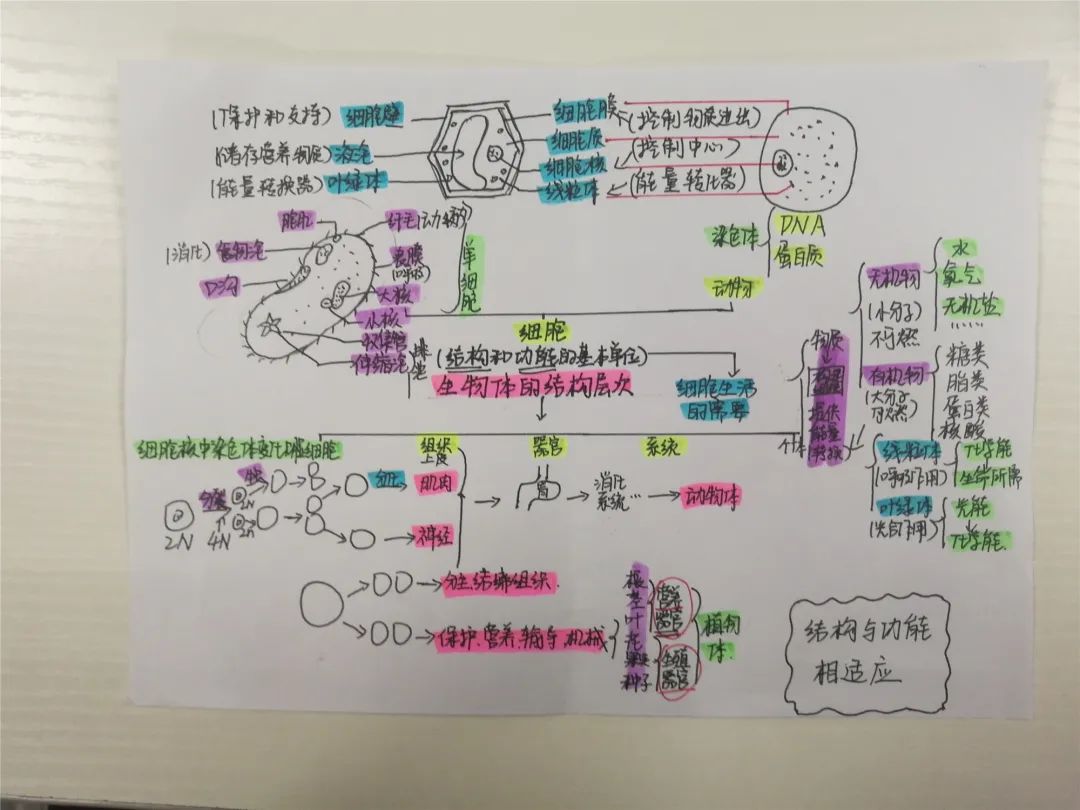 (保护和支持) 细胞壁
(储存营养物质) 液泡
(能量转换器) 叶绿体
细胞膜 (控制物质进出)
细胞质
细胞核 (控制中心)
线粒体 (能量转化器)
染色体
DNA
蛋白质
动物
胞肛
纤毛(动)
(消化) 食物泡
表膜
(呼吸)
口沟
大核
小核
收集管
伸缩泡
单细胞
细胞
(结构和功能的基本单位)
生物体的结构层次
细胞生活
的需要
物质
提供
能量
转换
无机物
(小分子)
不可燃
水
氧气
无机盐
……
有机物
(大分子
可燃)
糖类
脂类
蛋白类
核酸
线粒体
(呼吸作用)
化学能
生命所需
叶绿体
(光合作用)
光能
化学能
细胞核中染色体变化
组织
上皮
器官
系统
个体
分裂
生长
2N
4N
2N
2n
分化
肌肉
神经
胃
消化
系统…
动物体
分生.结缔组织.
保护.营养.输导.机械
根
茎
叶
花
果实
种子
营养
器官
生殖
器官
植物体.
结构与功能
相适应